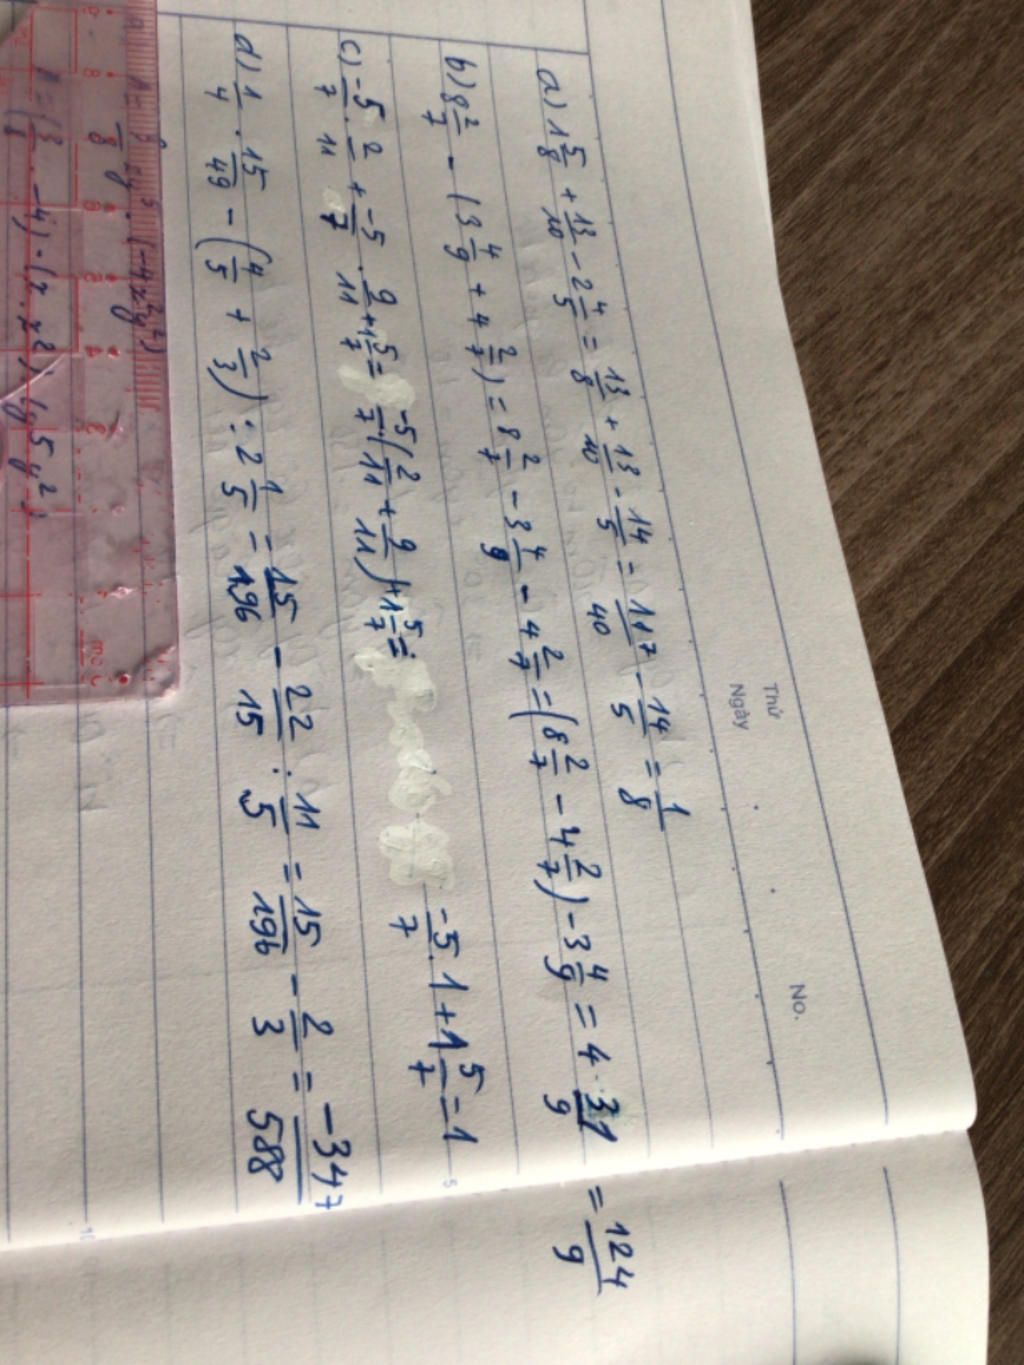 Thứ
Ngày
No.
a) 1 5/8 + 13/10 - 2 4/5 = 13/8 + 13/10 - 14/5 = 117/40 - 14/5 = 1/8
b) 8 2/7 - (3 4/9 + 4 2/7) = 8 2/7 - 3 4/9 - 4 2/7 = (8 2/7 - 4 2/7) - 3 4/9 = 4 - 31/9 = 124/9
c) -5/7 . 2/11 + -5/7 . 9/11 + 1 5/7 = -5/7 . (2/11 + 9/11) + 1 5/7 = -5/7 . 1 + 1 5/7 = 1
d) 1/4 . 15/49 - (4/5 + 2/3) : 2 1/5 = 15/196 - 22/15 : 11/5 = 15/196 - 2/3 = -347/588